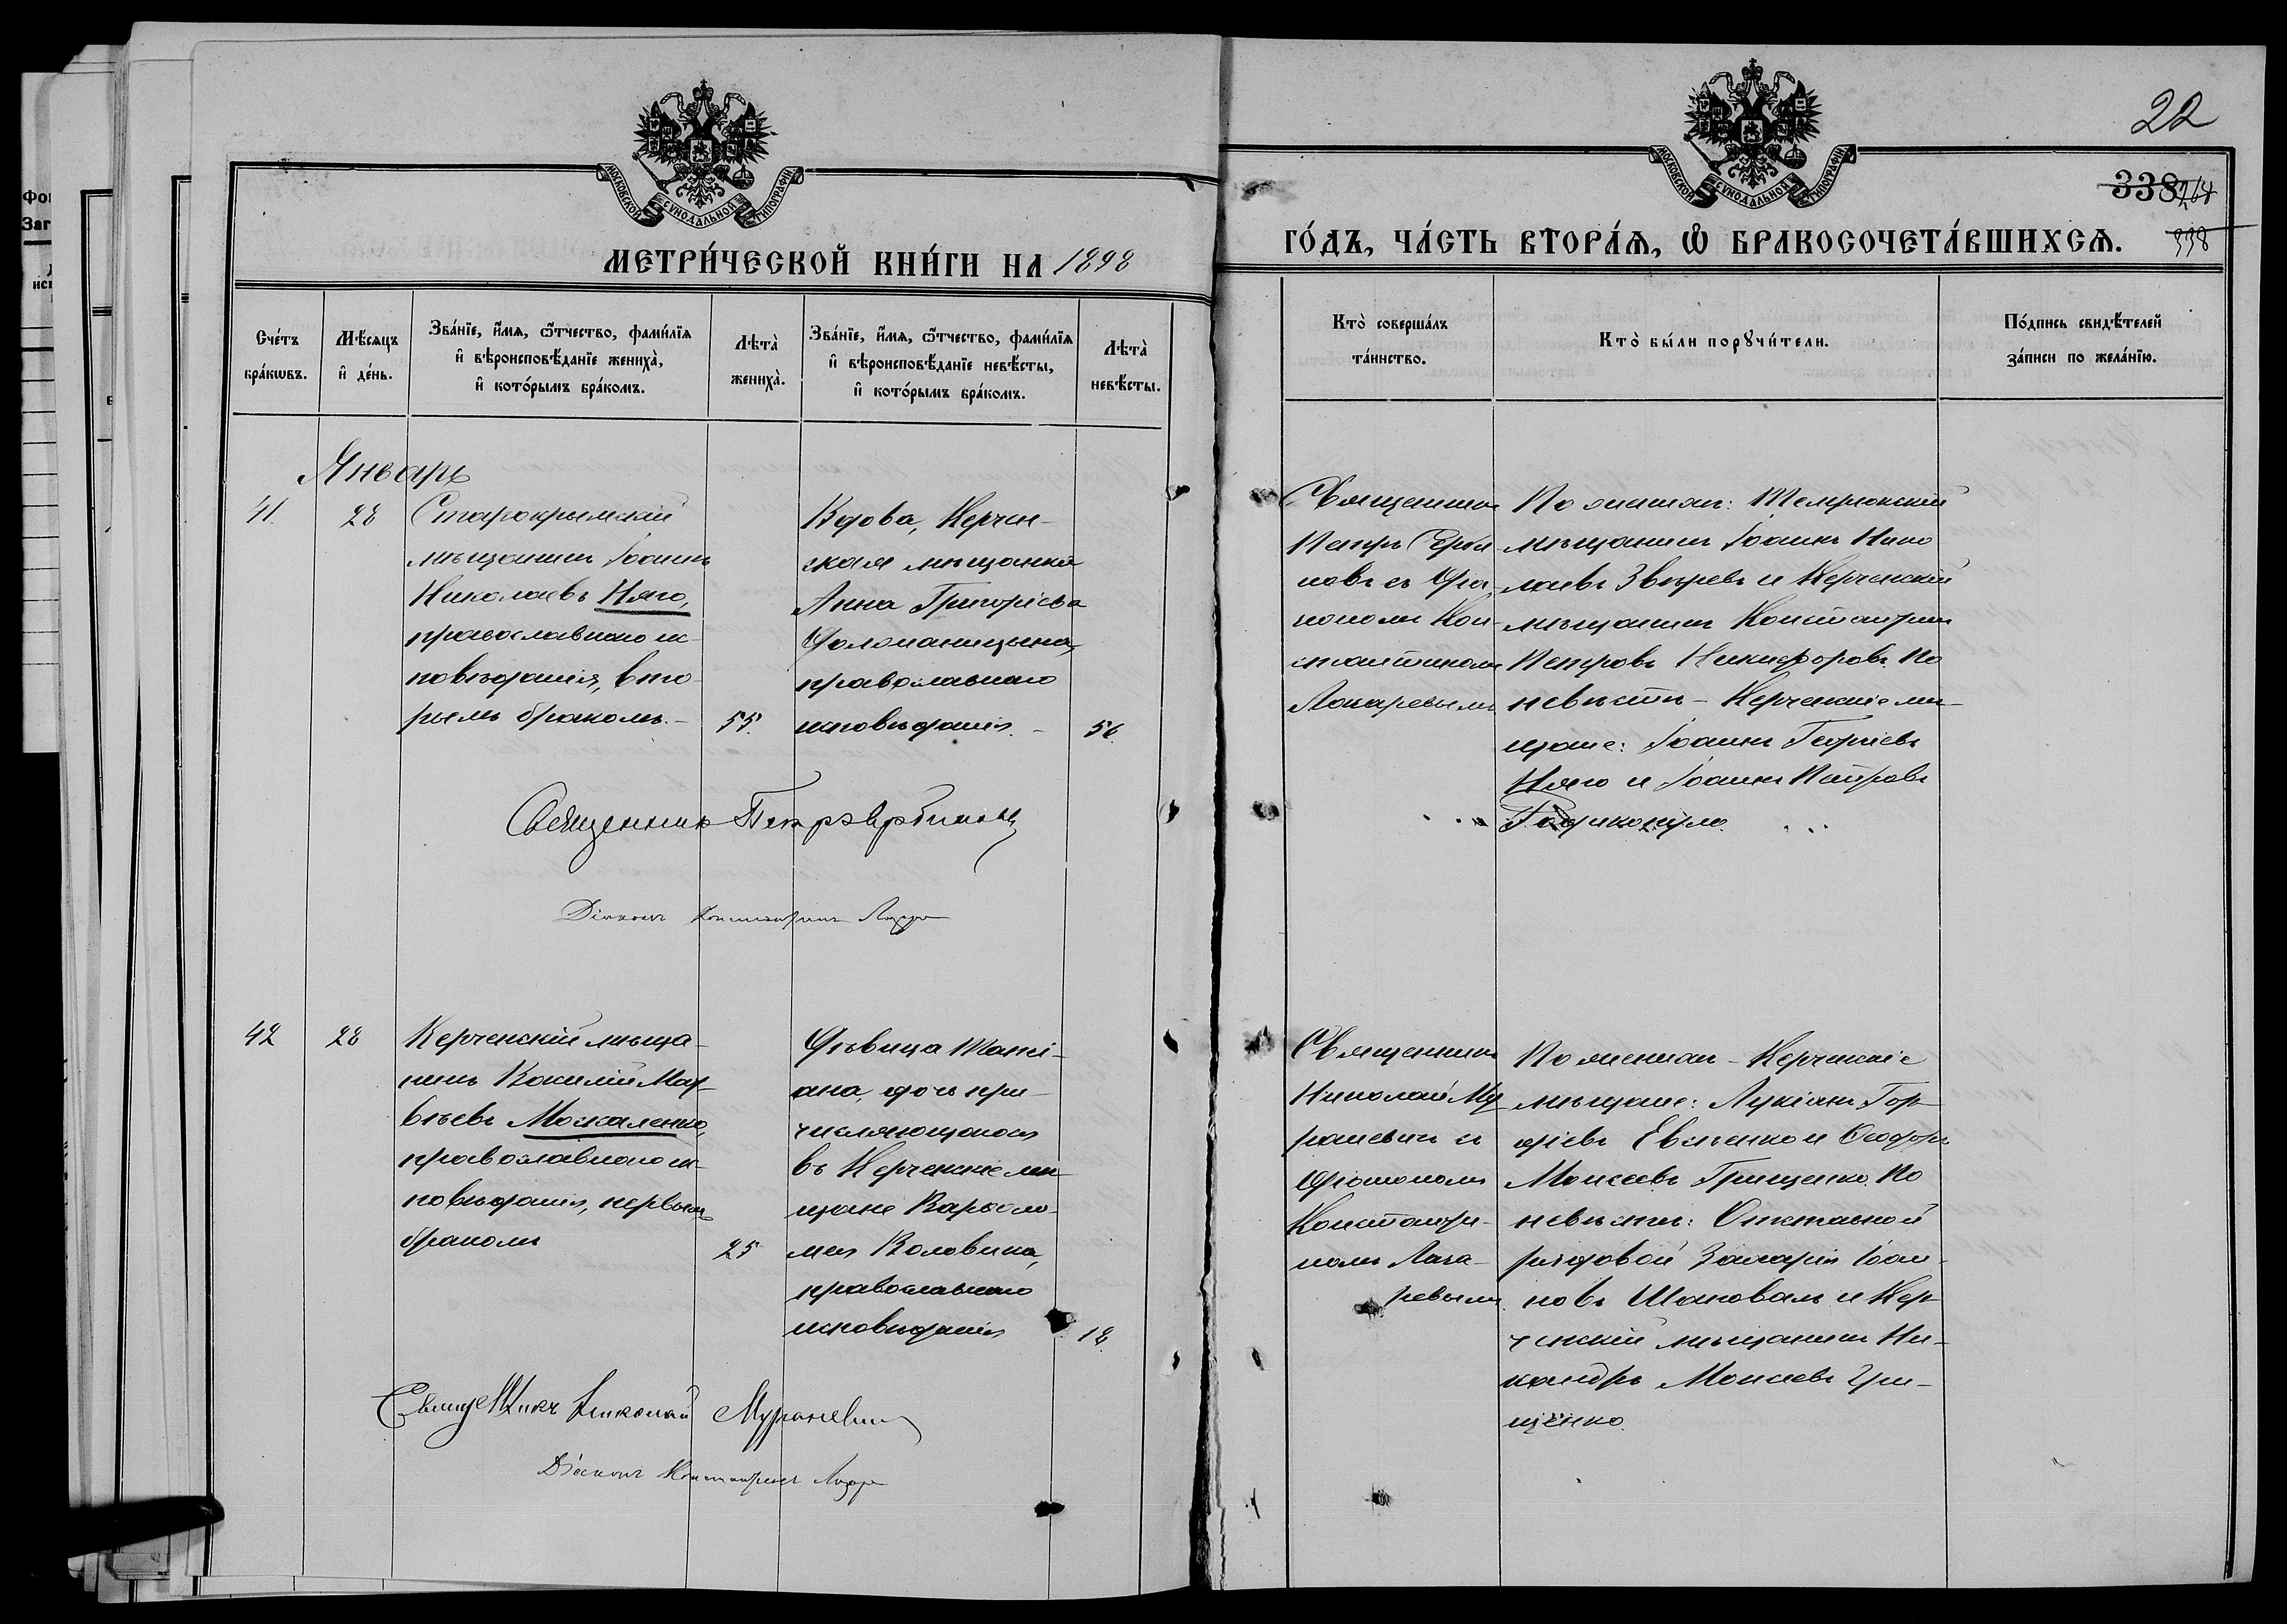 22
338
264
338
МОСКОВСКОЙ СУНОДАЛЬНОЙ ТИПОГРАФІИ
МОСКОВСКОЙ СУНОДАЛЬНОЙ ТИПОГРАФІИ
МЕТРИ́ЧЕСКОЙ КНИ́ГИ НА 1898
ГО́ДЪ, ЧА́СТЬ ВТОРА́Ѧ, Ѽ БРАКОСОЧЕТА́ВШИХСѦ.
Сче́тъ
бра́кѡвъ.
Мѣ́сѧцъ
и҆ де́нь.
Зва́нїе, и҆́мѧ, ѻ҆́тчество, фами́лїѧ
и҆ вѣроисповѣ́данїе жениха̀,
и҆ кото́рымъ бра́комъ.
Лѣта̀
жениха̀.
Зва́нїе, и҆́мѧ, ѻ҆́тчество, фами́лїѧ
и҆ вѣроисповѣ́данїе невѣ́сты,
и҆ кото́рымъ бра́комъ.
Лѣта̀
невѣ́сты.
Кто̀ соверша́лъ
та́инство.
Кто̀ бы́ли порꙋчи́тели.
По́дпись свидѣ́телей
за́писи по жела́нїю.
Январь
41.
28
Старокрымскій
мѣщанинъ Іоаннъ
Николаевъ Няго,
православнаго ис-
повѣданія, вто-
рымъ бракомъ.-
55.
Вдова, Керчен-
ская мѣщанка
Анна Григоріева
православнаго
исповѣданія.-
56.
Священникъ
Петръ Серби-
новъ съ Діа-
кономъ Кон-
стантиномъ
Лазаревымъ
По женихѣ: Темрюкскій
мѣщанинъ Іоаннъ Нико
лаевъ Звѣревъ и Керченскій
мѣщанинъ Константинъ
Петровъ Никифоровъ. По
невѣстѣ - Керченскіе мѣ-
щане: Іоаннъ Георгіевъ
Няго и Іоаннъ Петровъ
Священникъ Петръ Сербиновъ
Діаконъ Константинъ Лазаревъ
42
28
Керченскій мѣща-
нинъ Василій Мат-
вѣевъ Москаленко,
православнаго ис-
повѣданія, первымъ
бракомъ
25
Дѣвица Тати-
ана, дочь при-
числяющагося
въ Керченскіе мѣ-
щане Варѳоло-
мея Воловика,
православнаго
исповѣданія
18.
Священникъ
Николай Му
раневичъ съ
Діакономъ
Константи-
номъ Лаза-
ревымъ.
По женихѣ - Керченскіе
мѣщане: Лукіанъ Гор-
діевъ Евсѣенко и Ѳеодоръ
Моисеевъ Грищенко. По
невѣстѣ: Отставной
рядовой Захарія Іоан-
новъ Шаповалъ и Кер-
ченскій мѣщанинъ Ни-
кандръ Моисеевъ Гри-
щенко.
Священникъ Николай Мураневичъ
Діаконъ Константинъ Лазаревъ